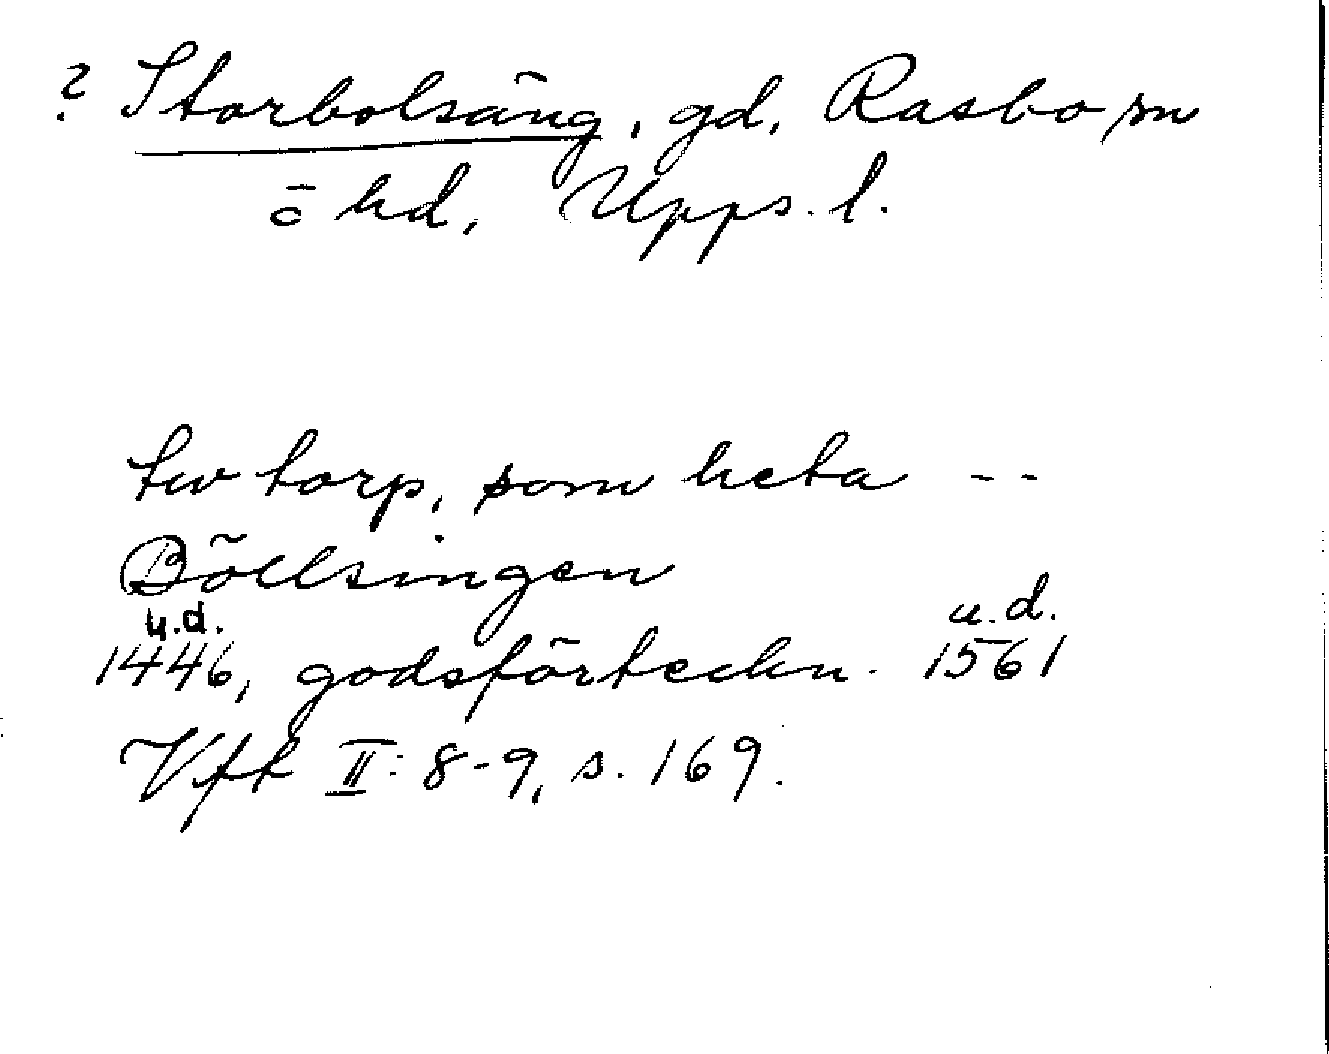 ? Storbolsäng, gd, Rasbo sn
ö hd, Upps. l.
tw torp, som heta --
Böllsingen
u.d. u.d.
1446, godsförteckn. 1561
Vft II: 8-9, s. 169.